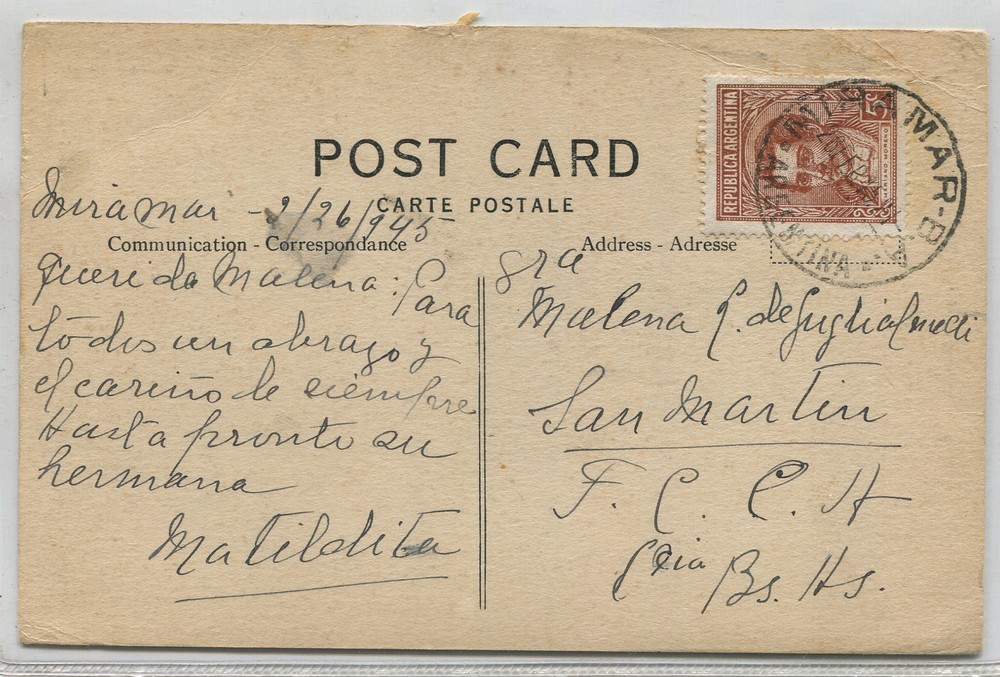 POST CARD
CARTE POSTALE
Miramar - 2/26/945
Communication - Correspondance
Querida Malena: Para
todos un abrazo y
el cariño de siempre
Hasta pronto su
hermana
Matildita
REPUBLICA ARGENTINA
5
MARIANO MORENO
MIRAMAR-B
ARGENTINA
Address - Adresse
Sra
Malena de Guglialmelli
San Martin
F. C. C. A
Bs. As.